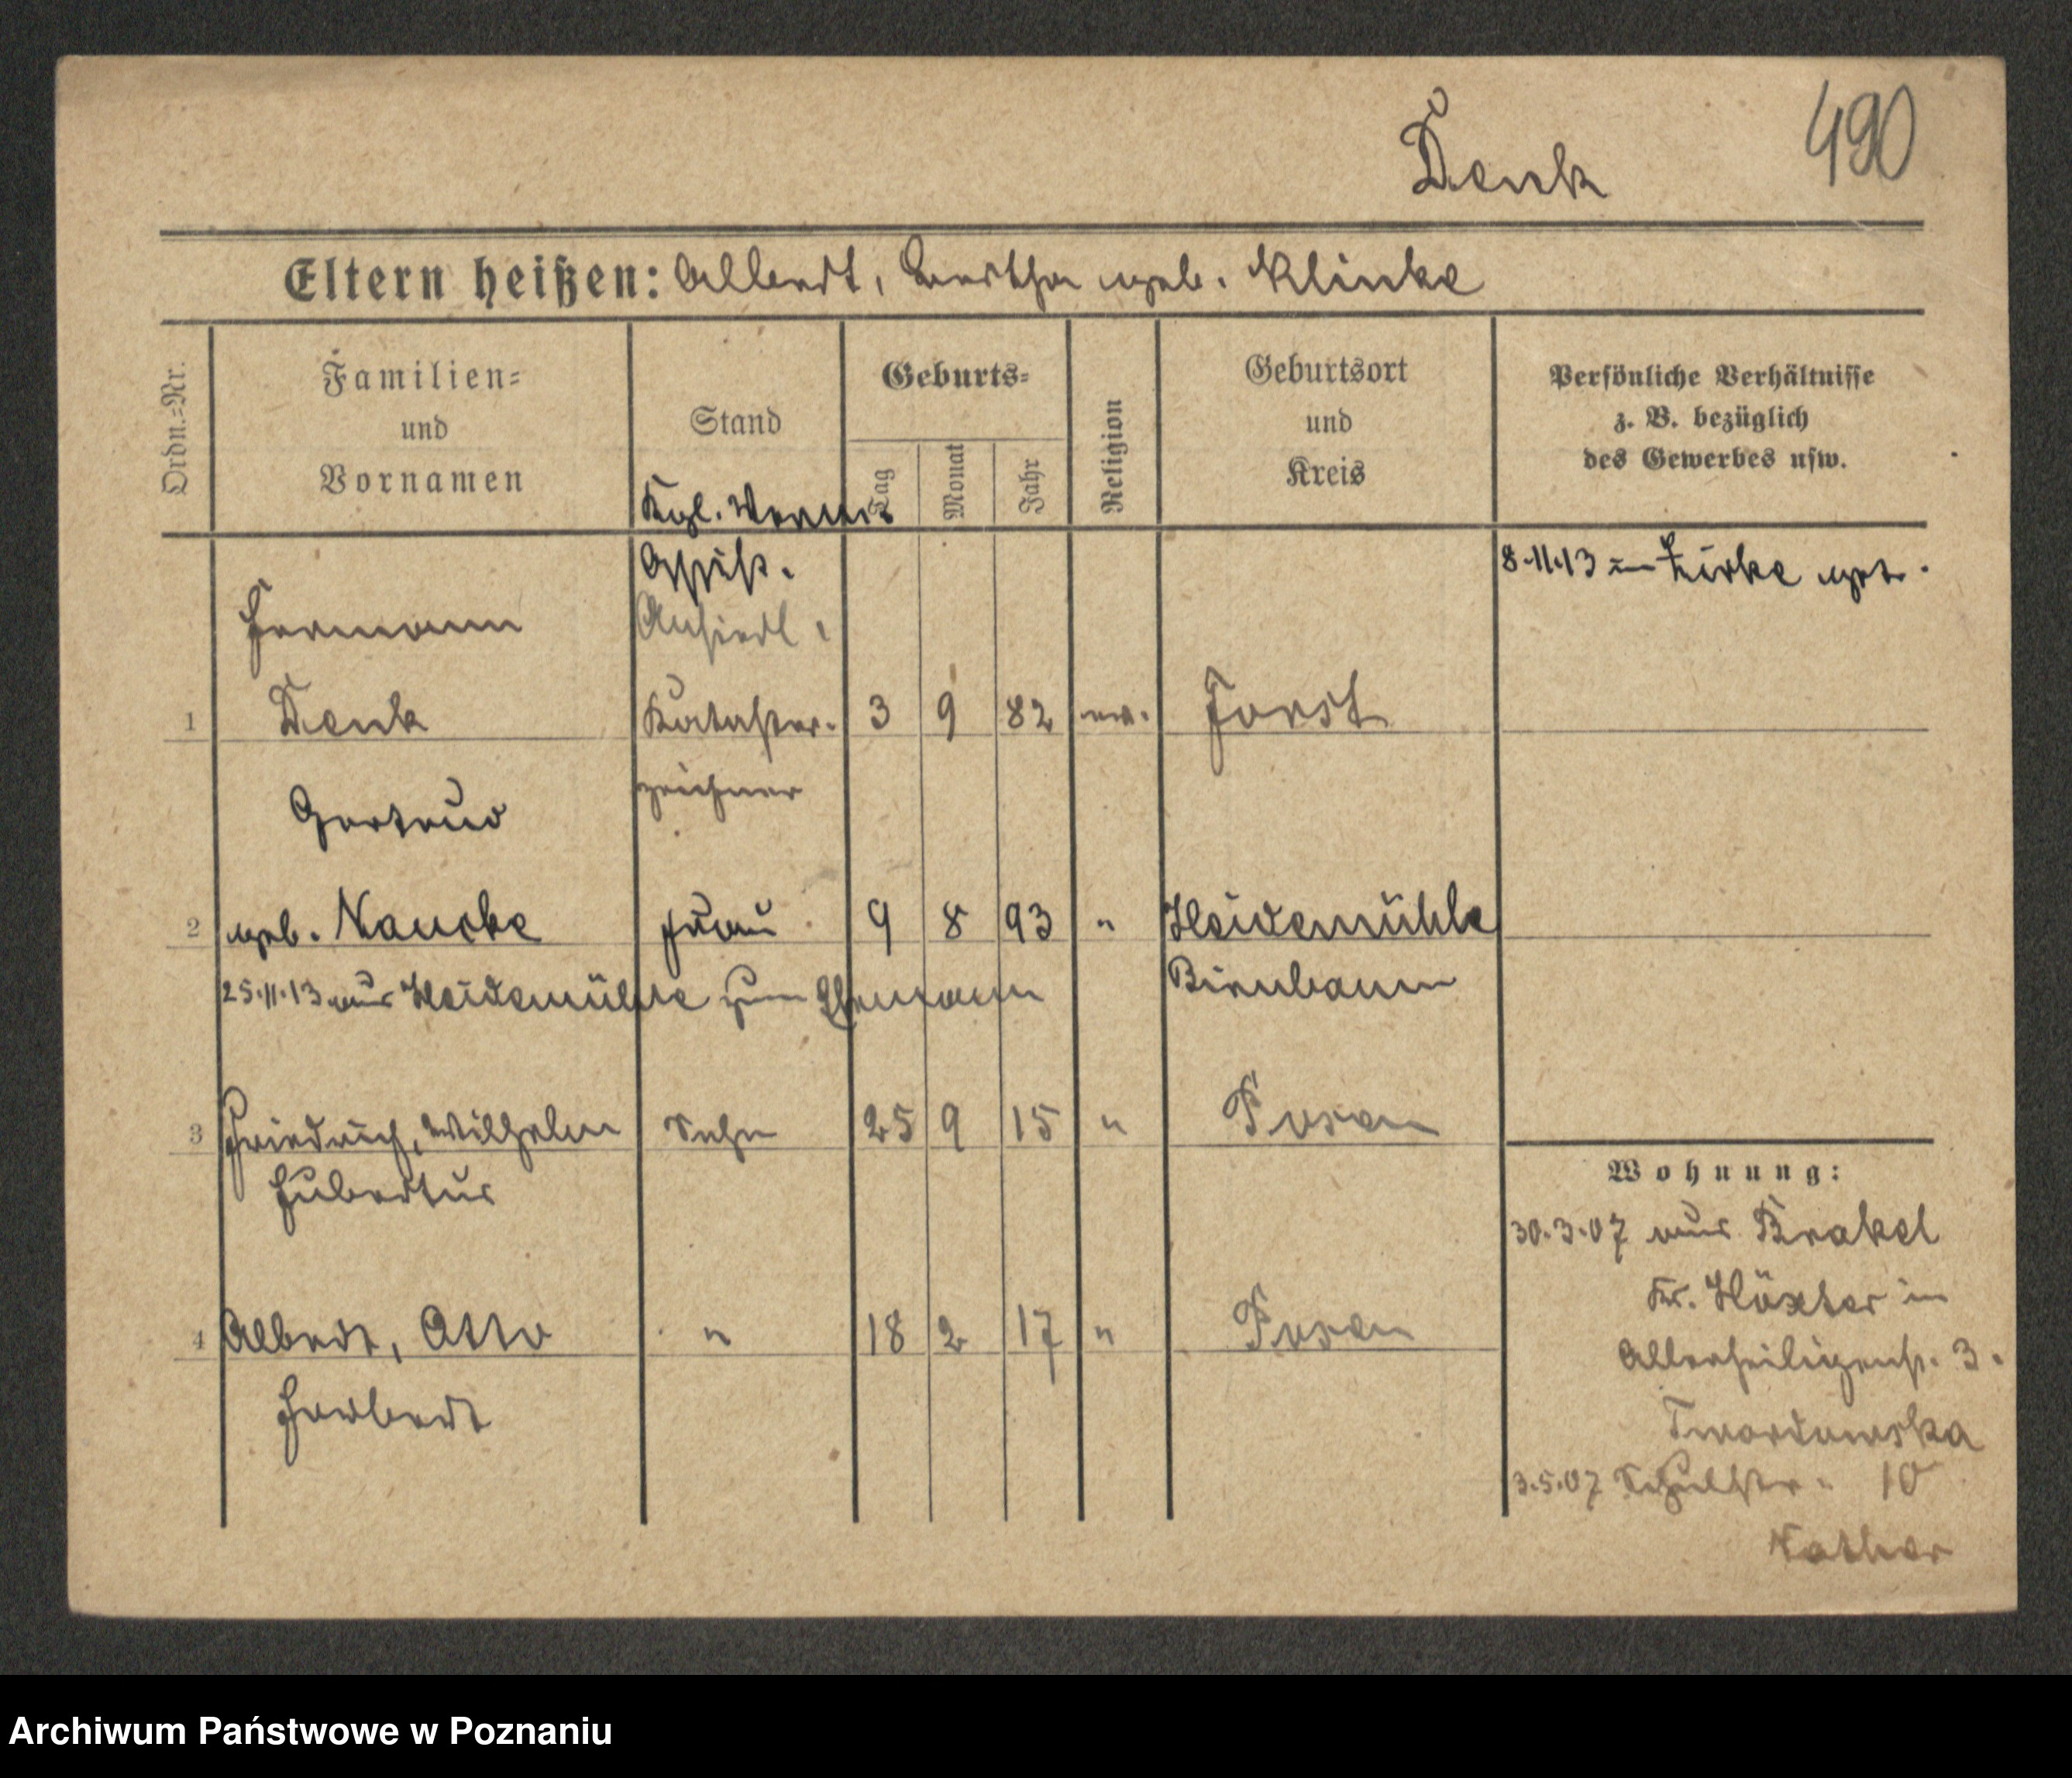 Denk
490
Eltern heißen: Albert, Bertha geb. Klinke
Ordn.-Nr.
Familien-
und
Vornamen
Stand
Geburts-
Tag
Monat
Jahr
Religion
Geburtsort
und
Kreis
Persönliche Verhältnisse
z. B. bezüglich
des Gewerbes usw.
Kgl.
Assist.
8.11.13 in Zirke getr.
Hermann
Ansiedl.
1 Denk Kataster- 3 9 82 ev. Forst
zeichner
Gertrud
2 geb. Naucke Frau 9 8 93 " Heidemühle
25.11.13 aus Heidemühle zum Ehemann Birnbaum
3 Friedrich, Wilhelm Sohn 25 9 15 " Posen
Hubertus
4 Albert, Otto " 18 2 17 " Posen
Herbert
Wohnung:
30.3.07 aus Brakel
Kr. Höxter in
Allerheiligenstr. 3.
Twardowska
3.5.07 Schulstr. 10
Archiwum Państwowe w Poznaniu